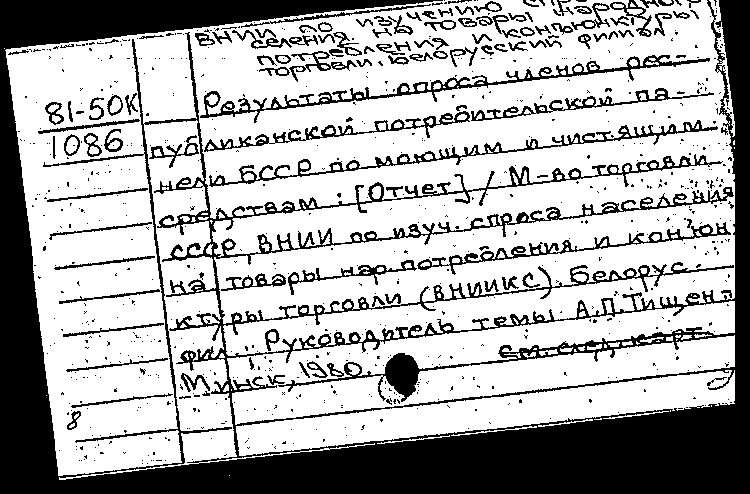 ВНИИ по изучению спр
селения на товары народного
потребления и конъюнктуры
торговли. Белорусский филиал.
81-50К
1086
Результаты опроса членов рес-
публиканской потребительской па-
нели БССР по моющим и чистящим
средствам : [Отчет] / М-во торговли
СССР, ВНИИ по изуч. спроса населения
на товары нар. потребления и конъюн
ктуры торговли (ВНИИКС). Белорус.
фил. ; Руководитель темы А.П.Тищен
Минск, 1980.
см. след. карт.
8